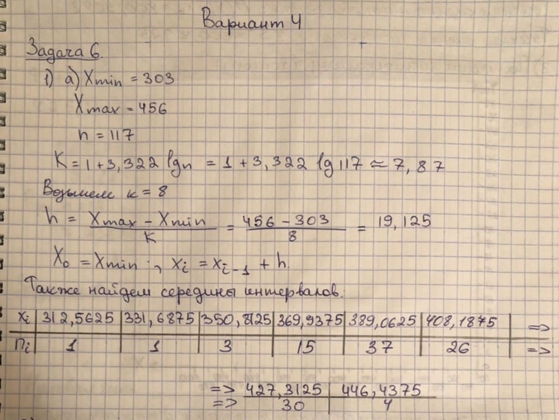 Вариант 4
Задача 6.
1) а) Xmin = 303
Xmax = 456
n = 117
K = 1 + 3,322 lgn = 1 + 3,322 lg 117 ≈ 7,87
Возьмем к = 8
h = (Xmax − Xmin)/K = (456 − 303)/8 = 19,125
X₀ = Xmin ; xᵢ = xᵢ₋₁ + h.
Также найдем середины интервалов.
xi | 312,5625 | 331,6875 | 350,8125 | 369,9375 | 389,0625 | 408,1875 | =>
ni | 1 | 1 | 3 | 15 | 37 | 26 | =>
=> 427,3125 | 446,4375
=> 30 | 4